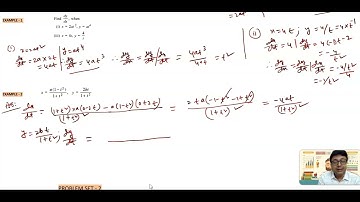 EXAMPLE - 1
Find dy/dx, when
(i) x = at², y = at⁴
(ii) x = 4t, y = 4/t
(i) x=at² | y=at⁴
dx/dt = 2a×2t
= 4at
∴ dy/dt = 4at³ ∴ dy/dx = dy/dt | dx/dt = 4at³/4at = t²
(ii) x=4t, y=4/t = 4×t⁻¹
dx/dt = 4 | dy/dt = 4×-1×t⁻²
= -4/t²
∴ dy/dx = dy/dt | dx/dt = -4/t²/4
= -1/t²
EXAMPLE - 2
x = a(1-t²)/1+t², y = 2bt/1+t²
dx/dt = (1+t²)×a(-2t) - a(1-t²)(0+2t)/(1+t²)² = 2ta(-1-t²-1+t²)/(1+t²)² = -4at/(1+t²)²
y = 2bt/(1+t²) dy/dt =
PROBLEM SET - 2